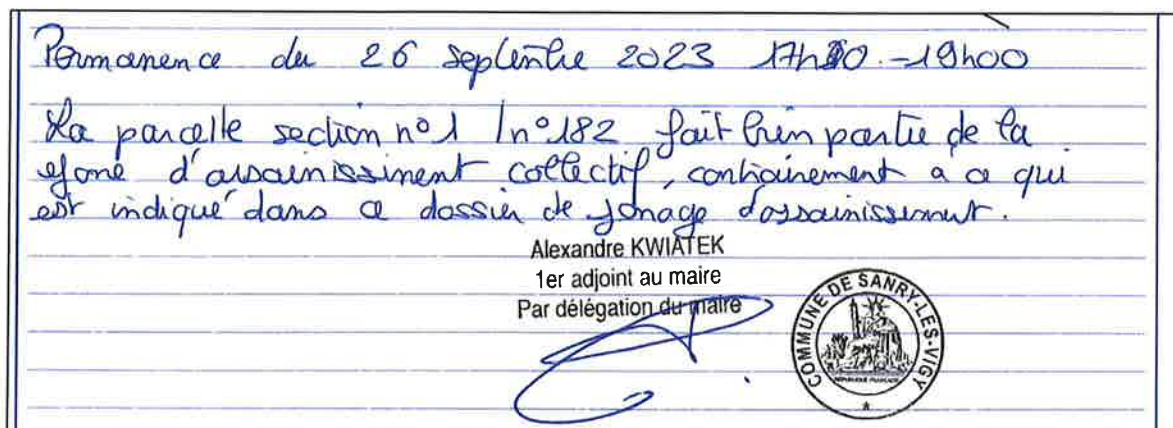 Permanence du 26 septembre 2023 17h30 - 19h00
La parcelle section n°1 / n°182 fait bien partie de la
zone d'assainissement collectif, contrairement a ce qui
est indiqué dans ce dossier de zonage d'assainissement.
Alexandre KWIATEK
1er adjoint au maire
Par délégation du maire
COMMUNE DE SANRY-LES-VIGY
RÉPUBLIQUE FRANÇAISE